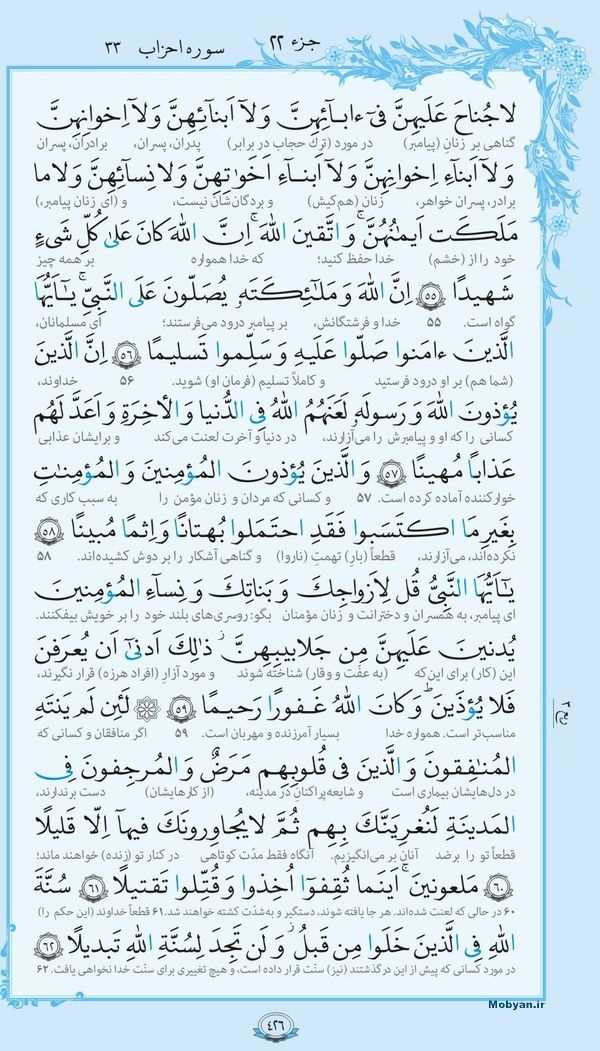 جزء ۲۲
سوره احزاب ۳۳
لا جُناحَ عَلَیهِنَّ فی ءابائِهِنَّ وَلا اَبنائِهِنَّ وَلا اِخوانِهِنَّ
گناهی بر زنانِ (پیامبر) در مورد (ترک حجاب در برابر) پدران، پسران، برادران، پسران
وَلا اَبناءِ اِخوانِهِنَّ وَلا اَبناءِ اَخَواتِهِنَّ وَلا نِسائِهِنَّ وَلا ما
برادر، پسران خواهر، زنان (هم‌کیش) و بردگان‌شان نیست، و (ای زنان پیامبر،)
مَلَکَت اَیمانُهُنَّ وَ اتَّقینَ اللهَ اِنَّ اللهَ کانَ عَلىٰ کُلِّ شَیءٍ
خود را از (خشم) خدا حفظ کنید؛ که خدا همواره بر همه چیز
شَهیدًا ۵۵ اِنَّ اللهَ وَ مَلائِکَتَهو یُصَلّونَ عَلَى النَّبیِّ یاَیُّهَا
گواه است. ۵۵ خدا و فرشتگانش، بر پیامبر درود می‌فرستند؛ ای مسلمانان،
الَّذینَ ءامَنوا صَلّوا عَلَیهِ وَ سَلِّموا تَسلیمًا ۵۶ اِنَّ الَّذینَ
(شما هم) بر او درود فرستید و کاملاً تسلیم (فرمان او) شوید. ۵۶ خداوند،
یُؤذونَ اللهَ وَ رَسولَهو لَعَنَهُمُ اللهُ فِی الدُّنیا وَ الأخِرَةِ وَ اَعَدَّ لَهُم
کسانی را که او و پیامبرش را می‌آزارند، در دنیا و آخرت لعنت می‌کند و برایشان عذابی
عَذابًا مُهینًا ۵۷ وَ الَّذینَ یُؤذونَ المُؤمِنینَ وَ المُؤمِناتِ
خوارکننده آماده کرده است. ۵۷ و کسانی که مردان و زنان مؤمن را به سبب کاری که
بِغَیرِ مَا اکتَسَبوا فَقَدِ احتَمَلوا بُهتانًا وَ اِثمًا مُبینًا ۵۸
نکرده‌اند، می‌آزارند، قطعاً (بار) تهمتِ (ناروا) و گناهی آشکار را بر دوش کشیده‌اند. ۵۸
یاَیُّهَا النَّبیُّ قُل لِاَزواجِكَ وَ بَناتِكَ وَ نِساءِ المُؤمِنینَ
ای پیامبر، به همسران و دخترانت و زنان مؤمنان بگو: روسری‌های بلند خود را بر خویش بیفکنند.
یُدنینَ عَلَیهِنَّ مِن جَلابیبِهِنَّ ذٰلِكَ اَدنىٰ اَن یُعرَفنَ
این (کار) برای این‌که (به عفّت و وقار) شناخته شوند و مورد آزارِ (افراد هرزه) قرار نگیرند،
فَلا یُؤذَینَ وَ کانَ اللهُ غَفورًا رَحیمًا ۵۹ لَئِن لَم یَنتَهِ
مناسب‌تر است. همواره خدا بسیار آمرزنده و مهربان است. ۵۹ اگر منافقان و کسانی که
المُنافِقونَ وَ الَّذینَ فی قُلوبِهِم مَرَضٌ وَ المُرجِفونَ فِی
در دل‌هایشان بیماری است و شایعه‌پراکنان در مدینه، (از کارهایشان) دست برندارند،
المَدینَةِ لَنُغرِیَنَّكَ بِهِم ثُمَّ لا یُجاوِرونَكَ فیها اِلّا قَلیلًا
قطعاً تو را برضد آنان بر می‌انگیزیم. آنگاه فقط مدّت کوتاهی در کنار تو (زنده) خواهند ماند؛
۶۰ مَلعونینَ اَینَما ثُقِفوا اُخِذوا وَ قُتِّلوا تَقتیلًا ۶۱ سُنَّةَ
۶۰ در حالی که لعنت شده‌اند. هر جا یافته شوند، دستگیر و به‌شدّت کشته خواهند شد. ۶۱ قطعاً خداوند (این حکم را)
اللهِ فِی الَّذینَ خَلَوا مِن قَبلُ وَ لَن تَجِدَ لِسُنَّةِ اللهِ تَبدیلًا ۶۲
در مورد کسانی که پیش از این درگذشتند (نیز) سنّت قرار داده است، و هیچ تغییری برای سنّت خدا نخواهی یافت. ۶۲
Mobyan.ir
۴۲۶